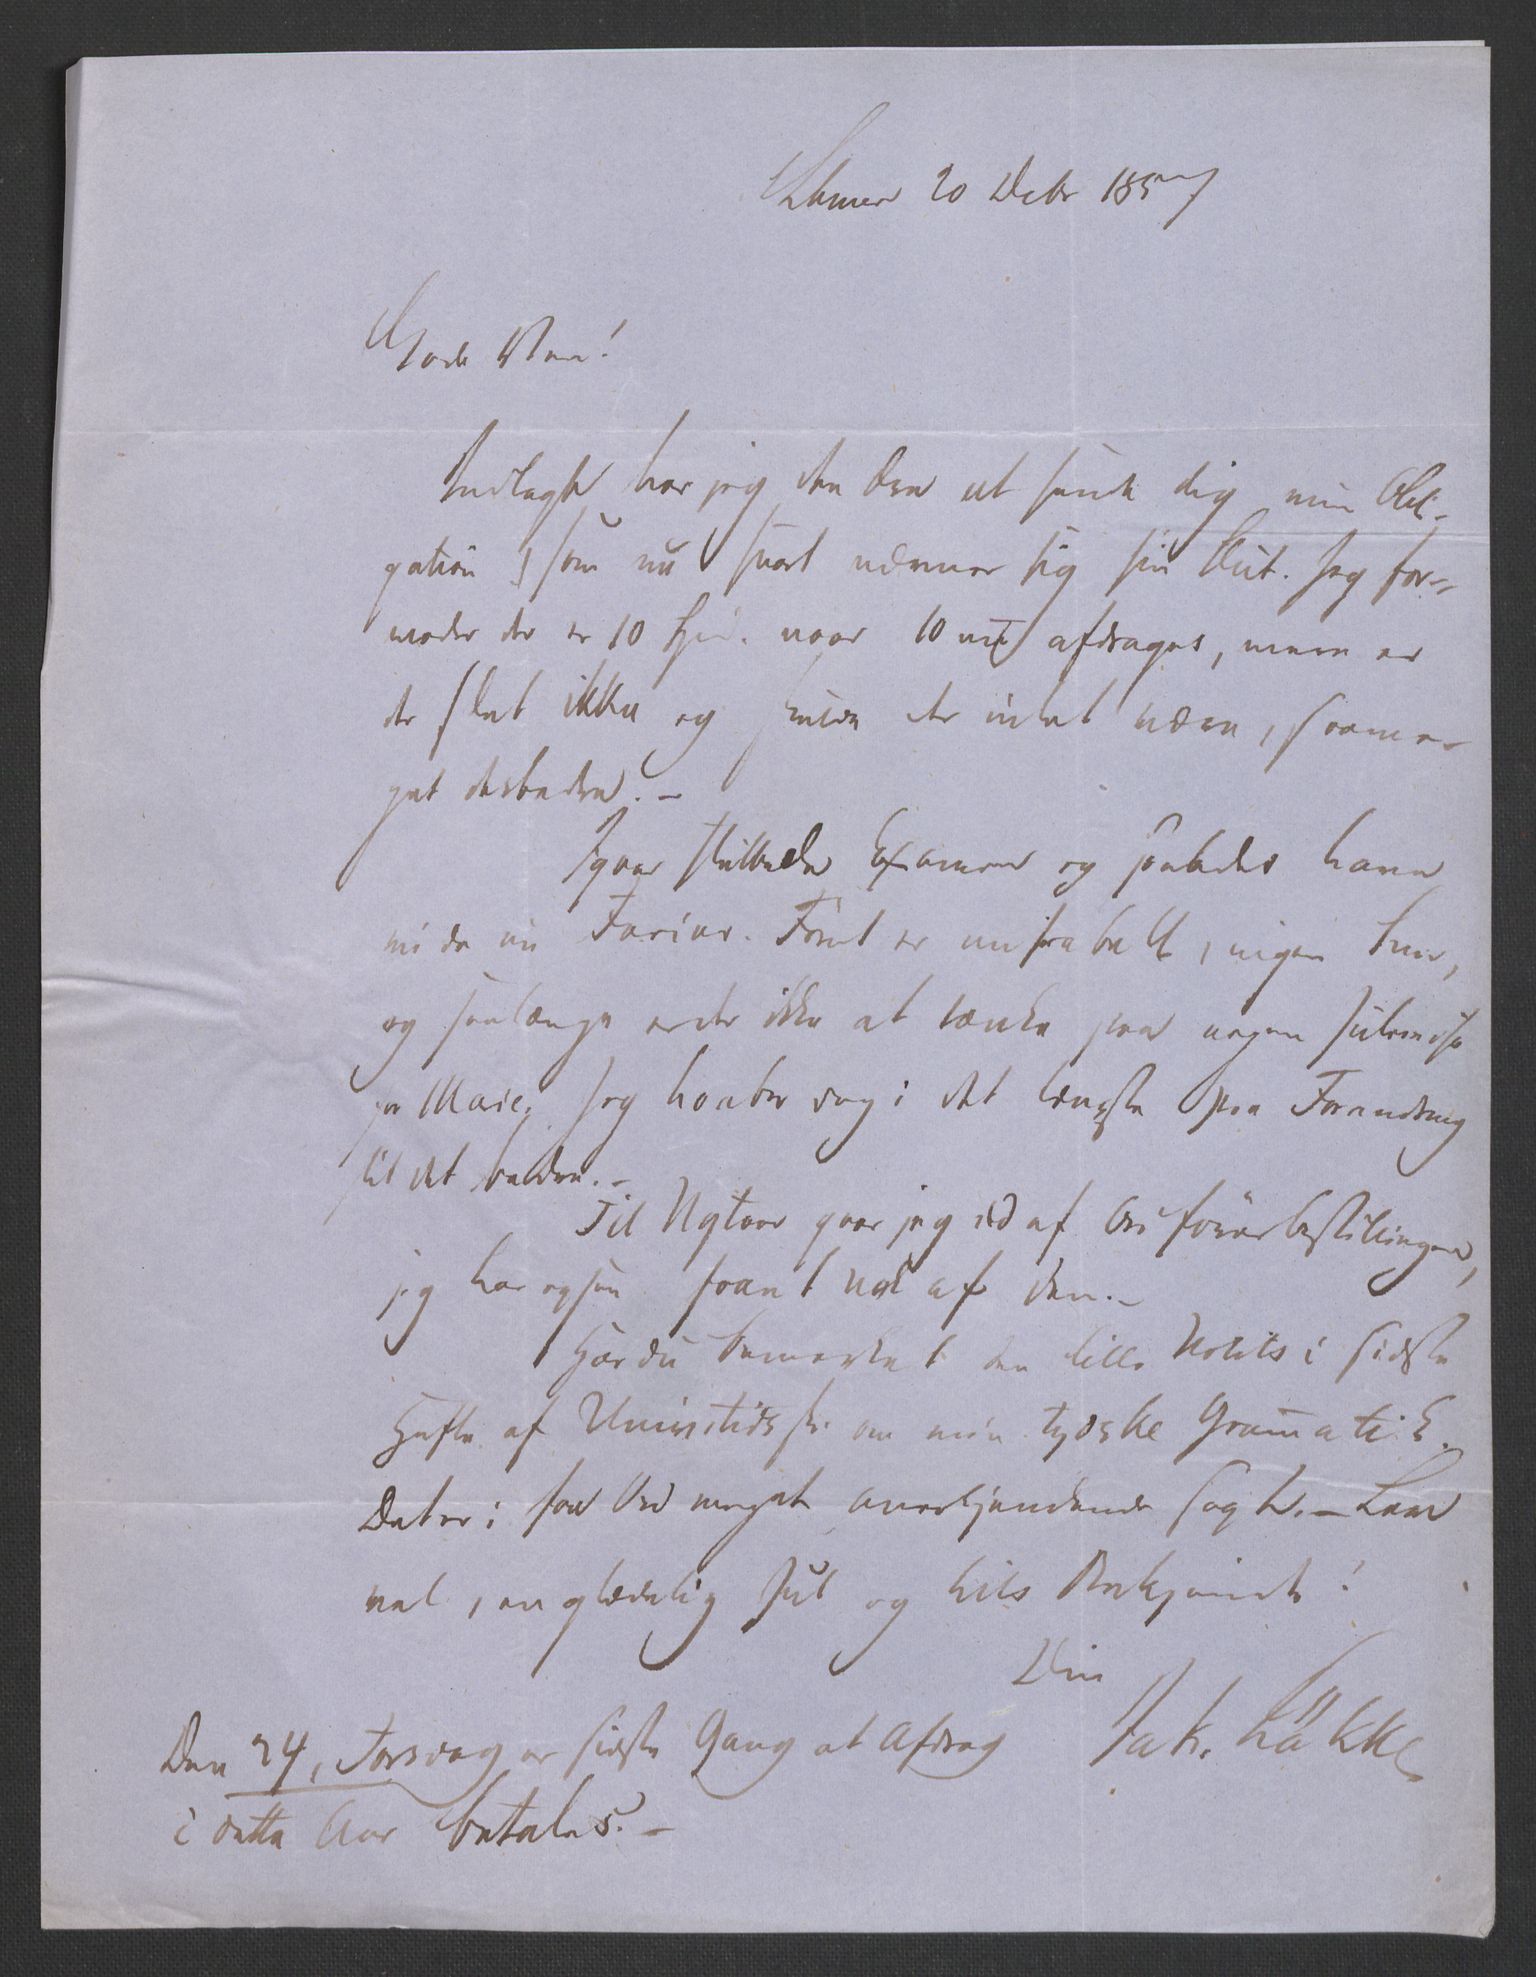 Hamar 20 Debr 1857
Gode Ven!
Indlagt har jeg den Ere at sende dig min Obli-
gation, som nu snart nærmer sig sin Slut. Jeg for-
moder der er 10 Spd. naar 10 afdrages, men er
der slet ikke og der intet være, saa meget
desbedre. –
Igaar sluttede Examen og saaledes have
vi da nu Ferier. Føret er miserabelt, ingen Snee,
og saalænge er der ikke at tænke paa nogen Julereise
for Marie; jeg haaber dog i det længste paa Forandring
til det bedre. –
Til Nytaar gaar jeg ud af bestillingen,
jeg har ogsaa faaet nok af den. –
Har du bemærket den lille Notits i sidste
Hefte af Univ. tidsskr. om min tydske Gramatik.
Det er i faa Ord meget anerkjendende sagt. – Lev
vel, en glædelig Jul og hils Bekjendte!
Din
Jak. Løkke
Den 24, Torsdag er sidste Gang at Afdrag
i dette Aar betales. –